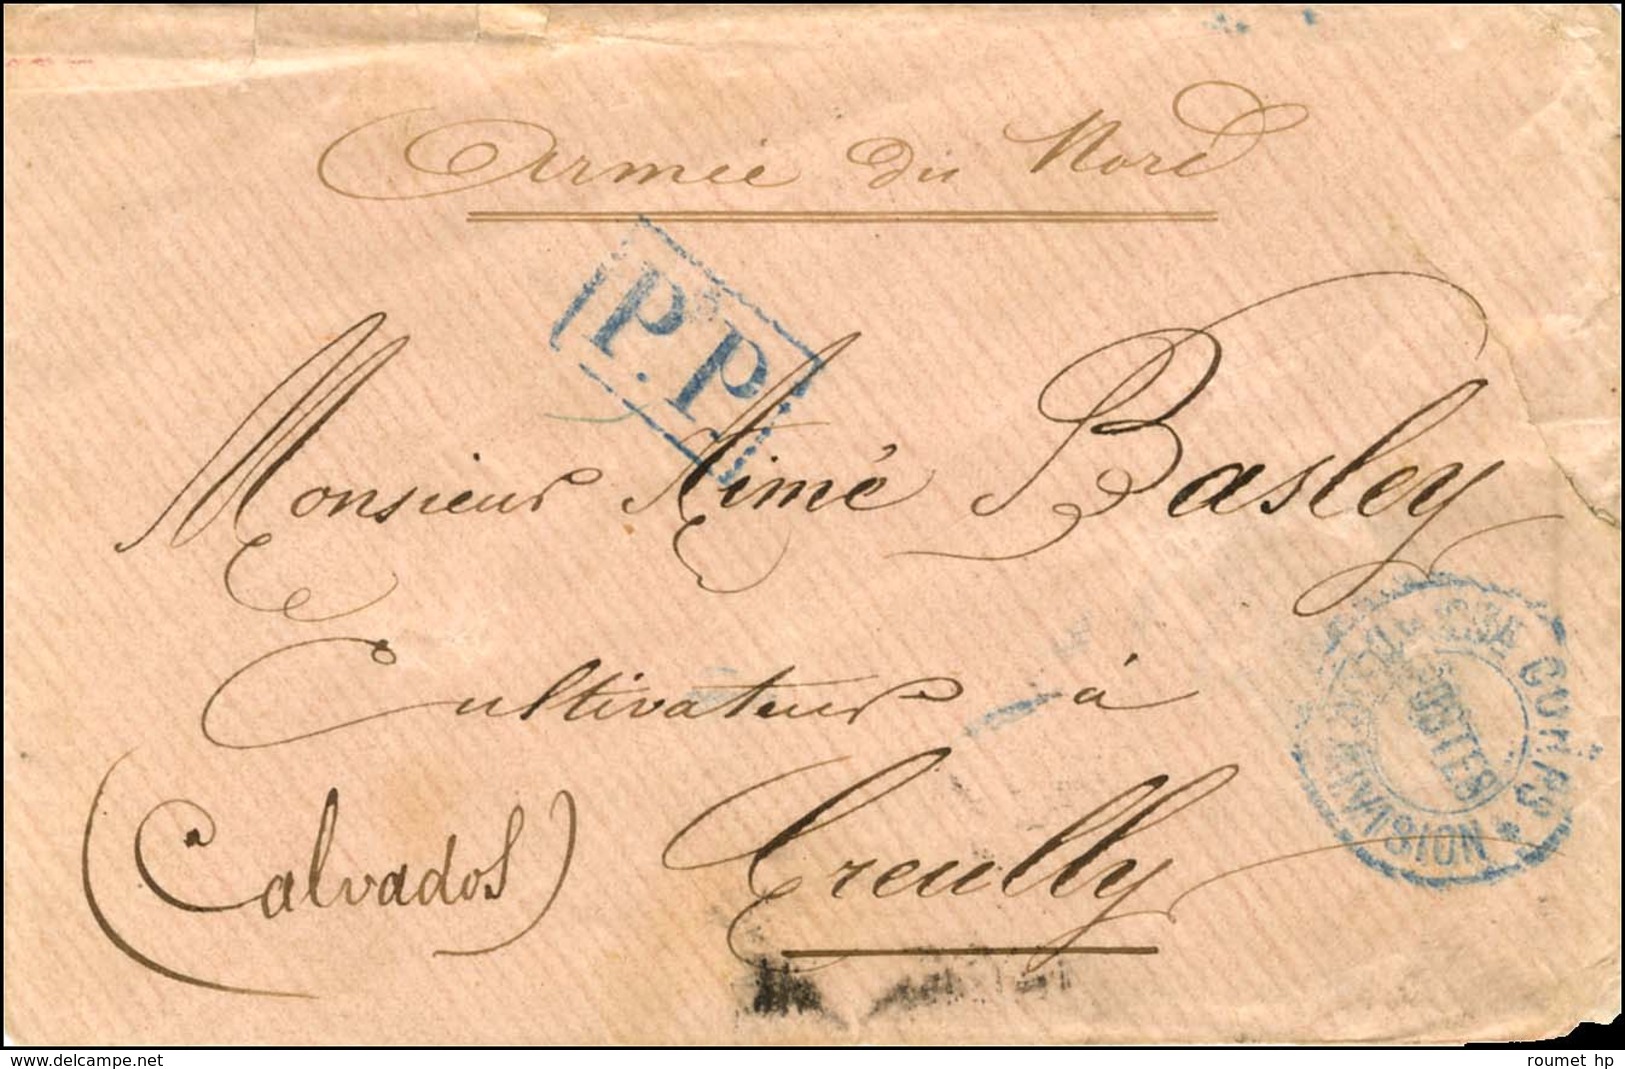 Armée du Nord
P.P.
Monsieur Aimé Basley
Cultivateur à
(Calvados) Creully
CORPS
POSTES
DIVISION *
www.delcampe.net
roumet hp